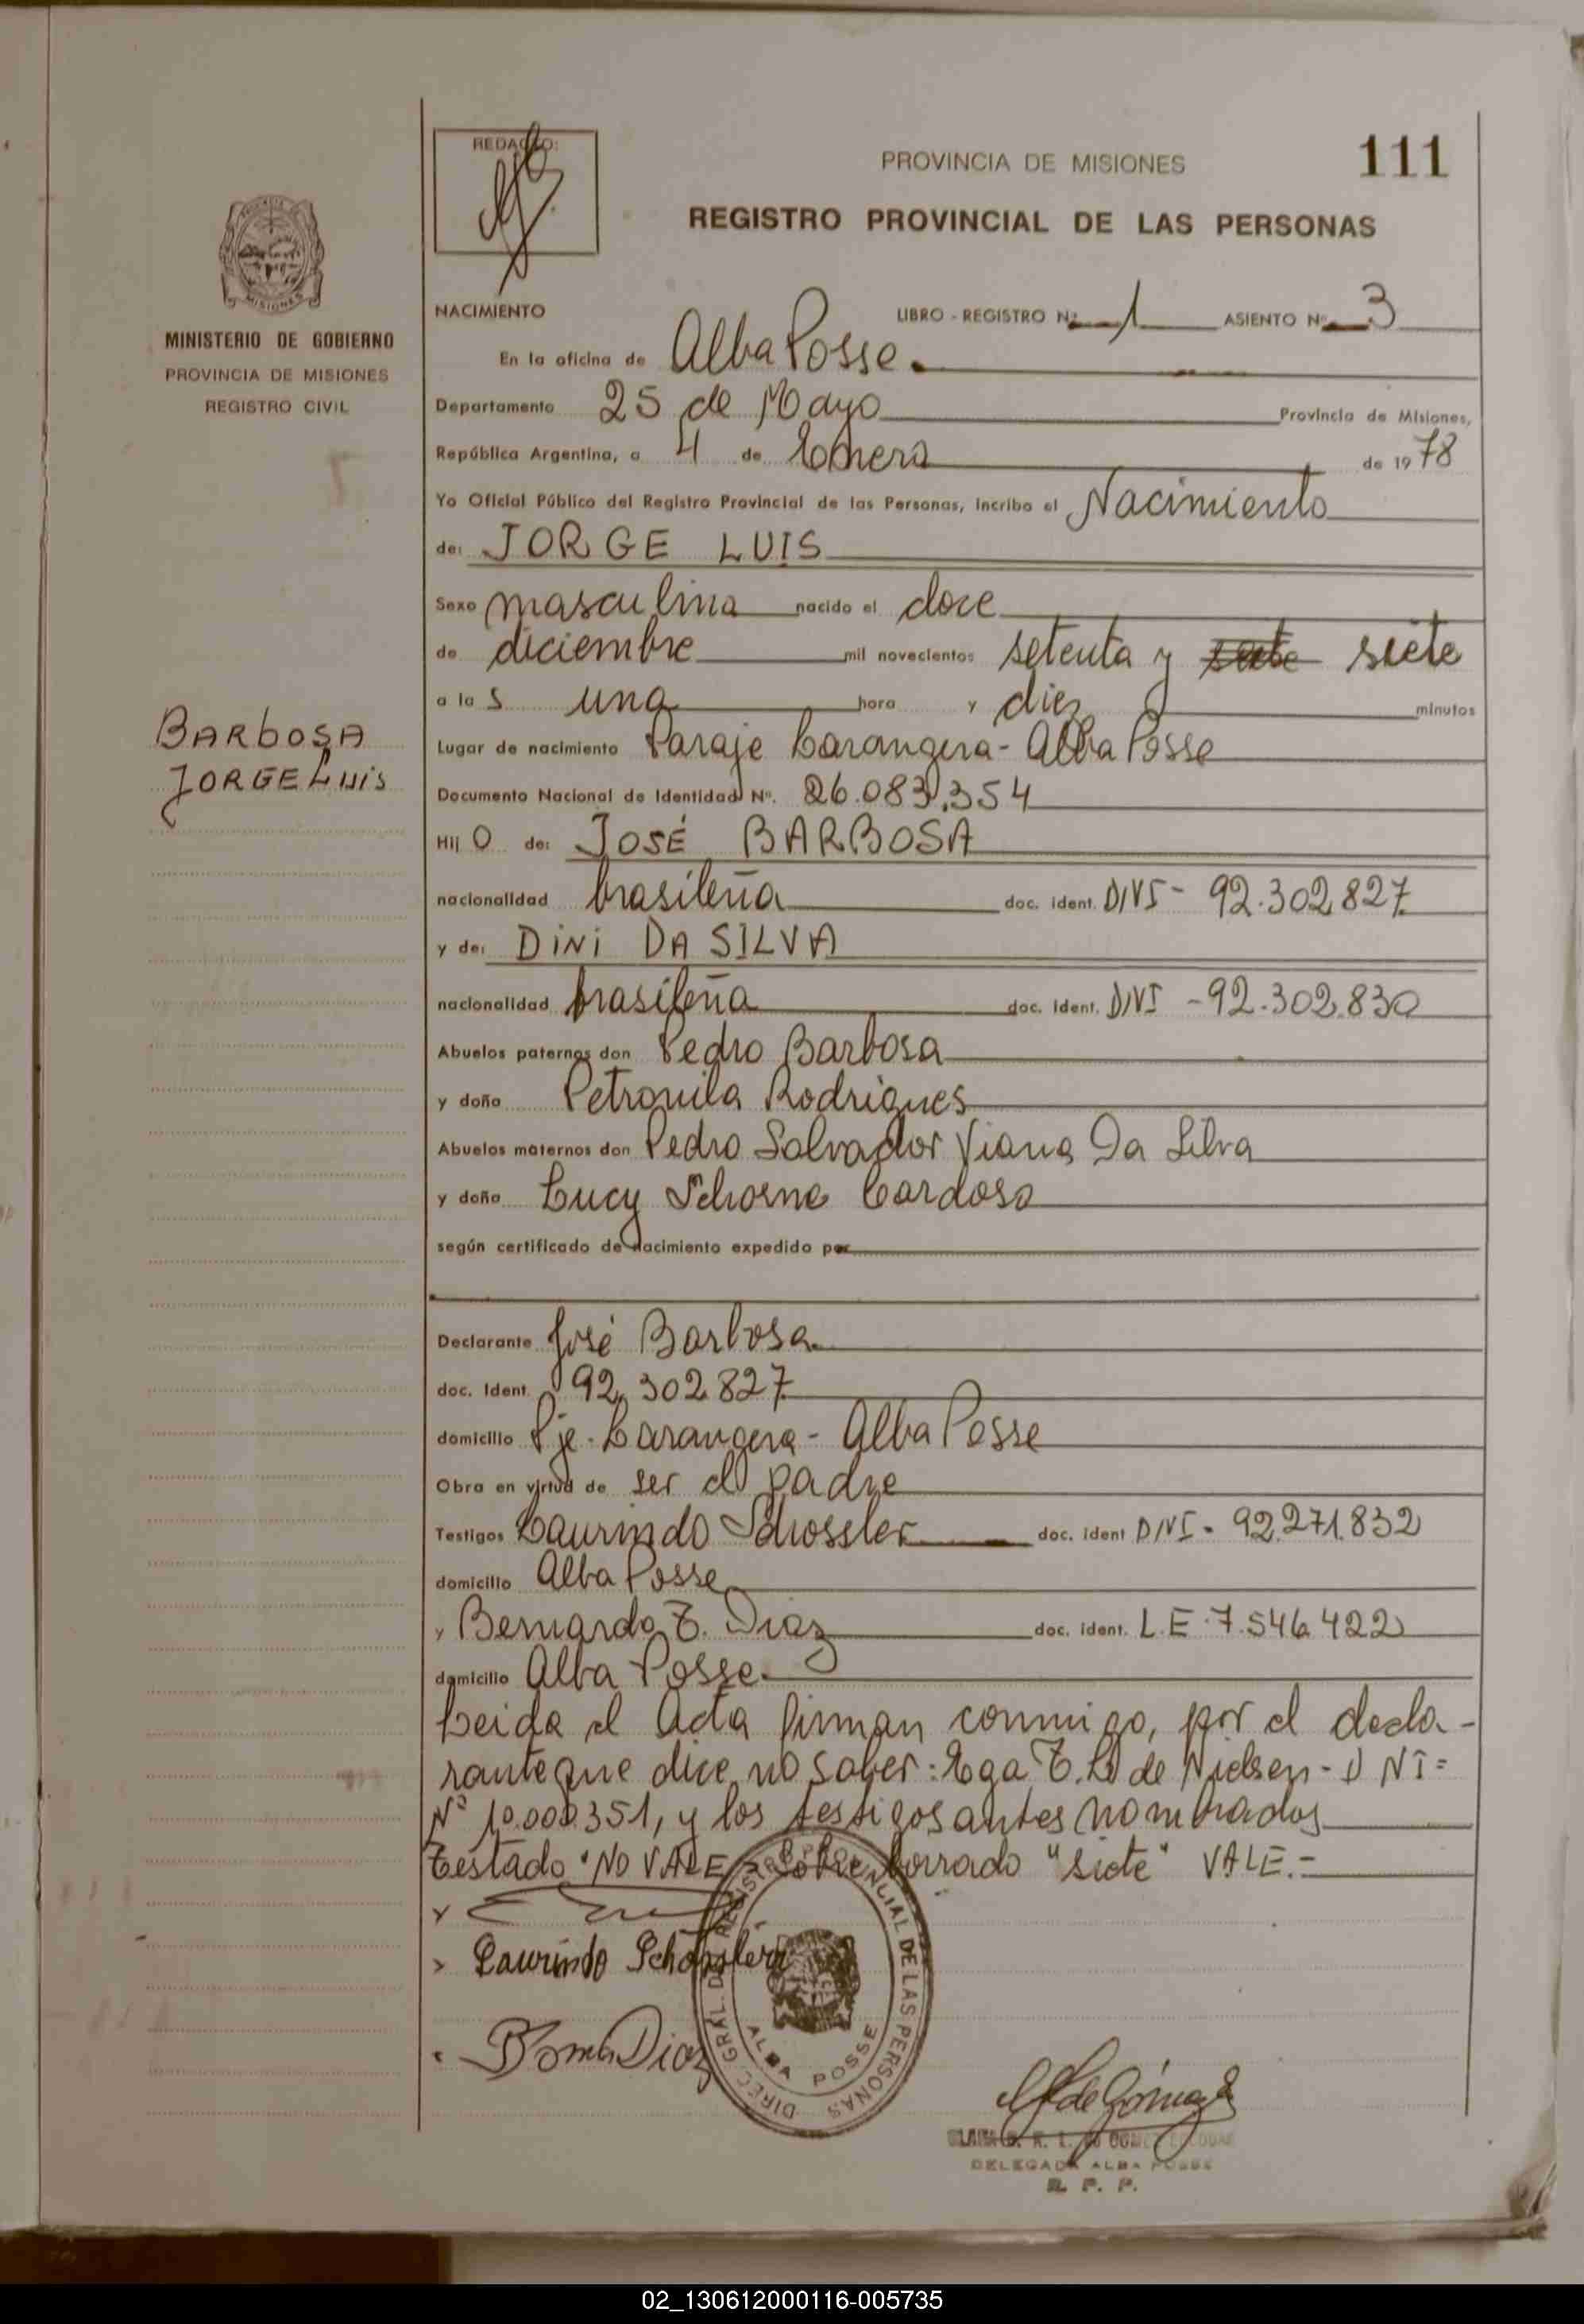 REDACTO:
PROVINCIA DE MISIONES
111
REGISTRO PROVINCIAL DE LAS PERSONAS
MINISTERIO DE GOBIERNO
PROVINCIA DE MISIONES
REGISTRO CIVIL
NACIMIENTO
LIBRO - REGISTRO Nº 1 ASIENTO Nº 3
En la oficina de Alba Posse.
Departamento 25 de Mayo Provincia de Misiones,
República Argentina, a 4 de Enero de 1978
Yo Oficial Público del Registro Provincial de las Personas, incribo el Nacimiento
de: JORGE LUIS
Sexo masculino nacido el doce
de diciembre mil novecientos setenta y siete
a las una hora y diez minutos
BARBOSA
JORGE LUIS
Lugar de nacimiento Paraje Carangera - Alba Posse
Documento Nacional de Identidad Nº. 26.083.354
Hijo de: JOSÉ BARBOSA
nacionalidad brasileña doc. ident. DNI - 92.302.827
y de: DINI DA SILVA
nacionalidad brasileña doc. ident. DNI - 92.302.830
Abuelos paternos don Pedro Barbosa
y doña Petronila Rodrigues
Abuelos maternos don Pedro Salvador Viana Da Silva
y doña Lucy Cardoso
según certificado de nacimiento expedido por
Declarante José Barbosa
doc. Ident. 92.302.827
domicilio Pje. Carangera - Alba Posse
Obra en virtud de ser el padre
Testigos Laurindo Schossler doc. ident DNI - 92.271.832
domicilio Alba Posse
y Bernardo T. Diaz doc. ident. L.E. 7.546.422
domicilio Alba Posse.
Leida el Acta firman conmigo, por el decla-
rante que dice no saber: de Nielsen - DNI=
Nº 10.000.351, y los testigos antes nombrados
Testado "NO VALE" Sobre borrado "siete" VALE.-
Laurindo Schossler
Diaz
DIREC. GRAL. DEL REGISTRO PROVINCIAL DE LAS PERSONAS
ALBA POSSE
de Gómez
DELEGADA ALBA POSSE
R. P. P.
02_130612000116-005735